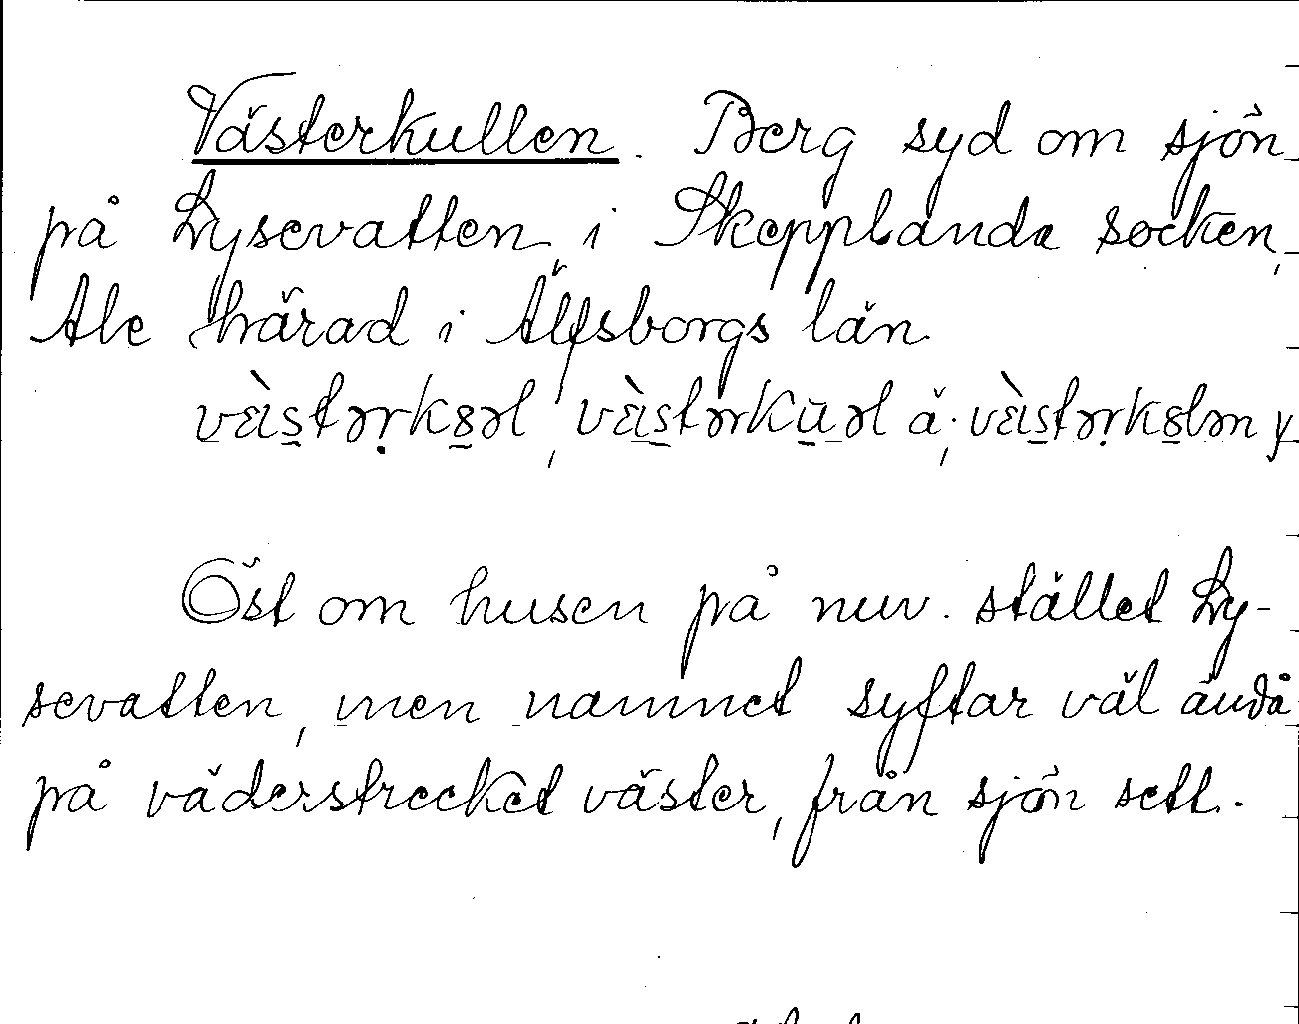 Västerkullen. Berg syd om sjön
på Lysevatten, i Skepplanda socken,
Ale härad i Älfsborgs län.
Öst om husen på nuv. stället Ly-
sevatten, men namnet syftar väl ändå
på väderstrecket väster, från sjön sett.